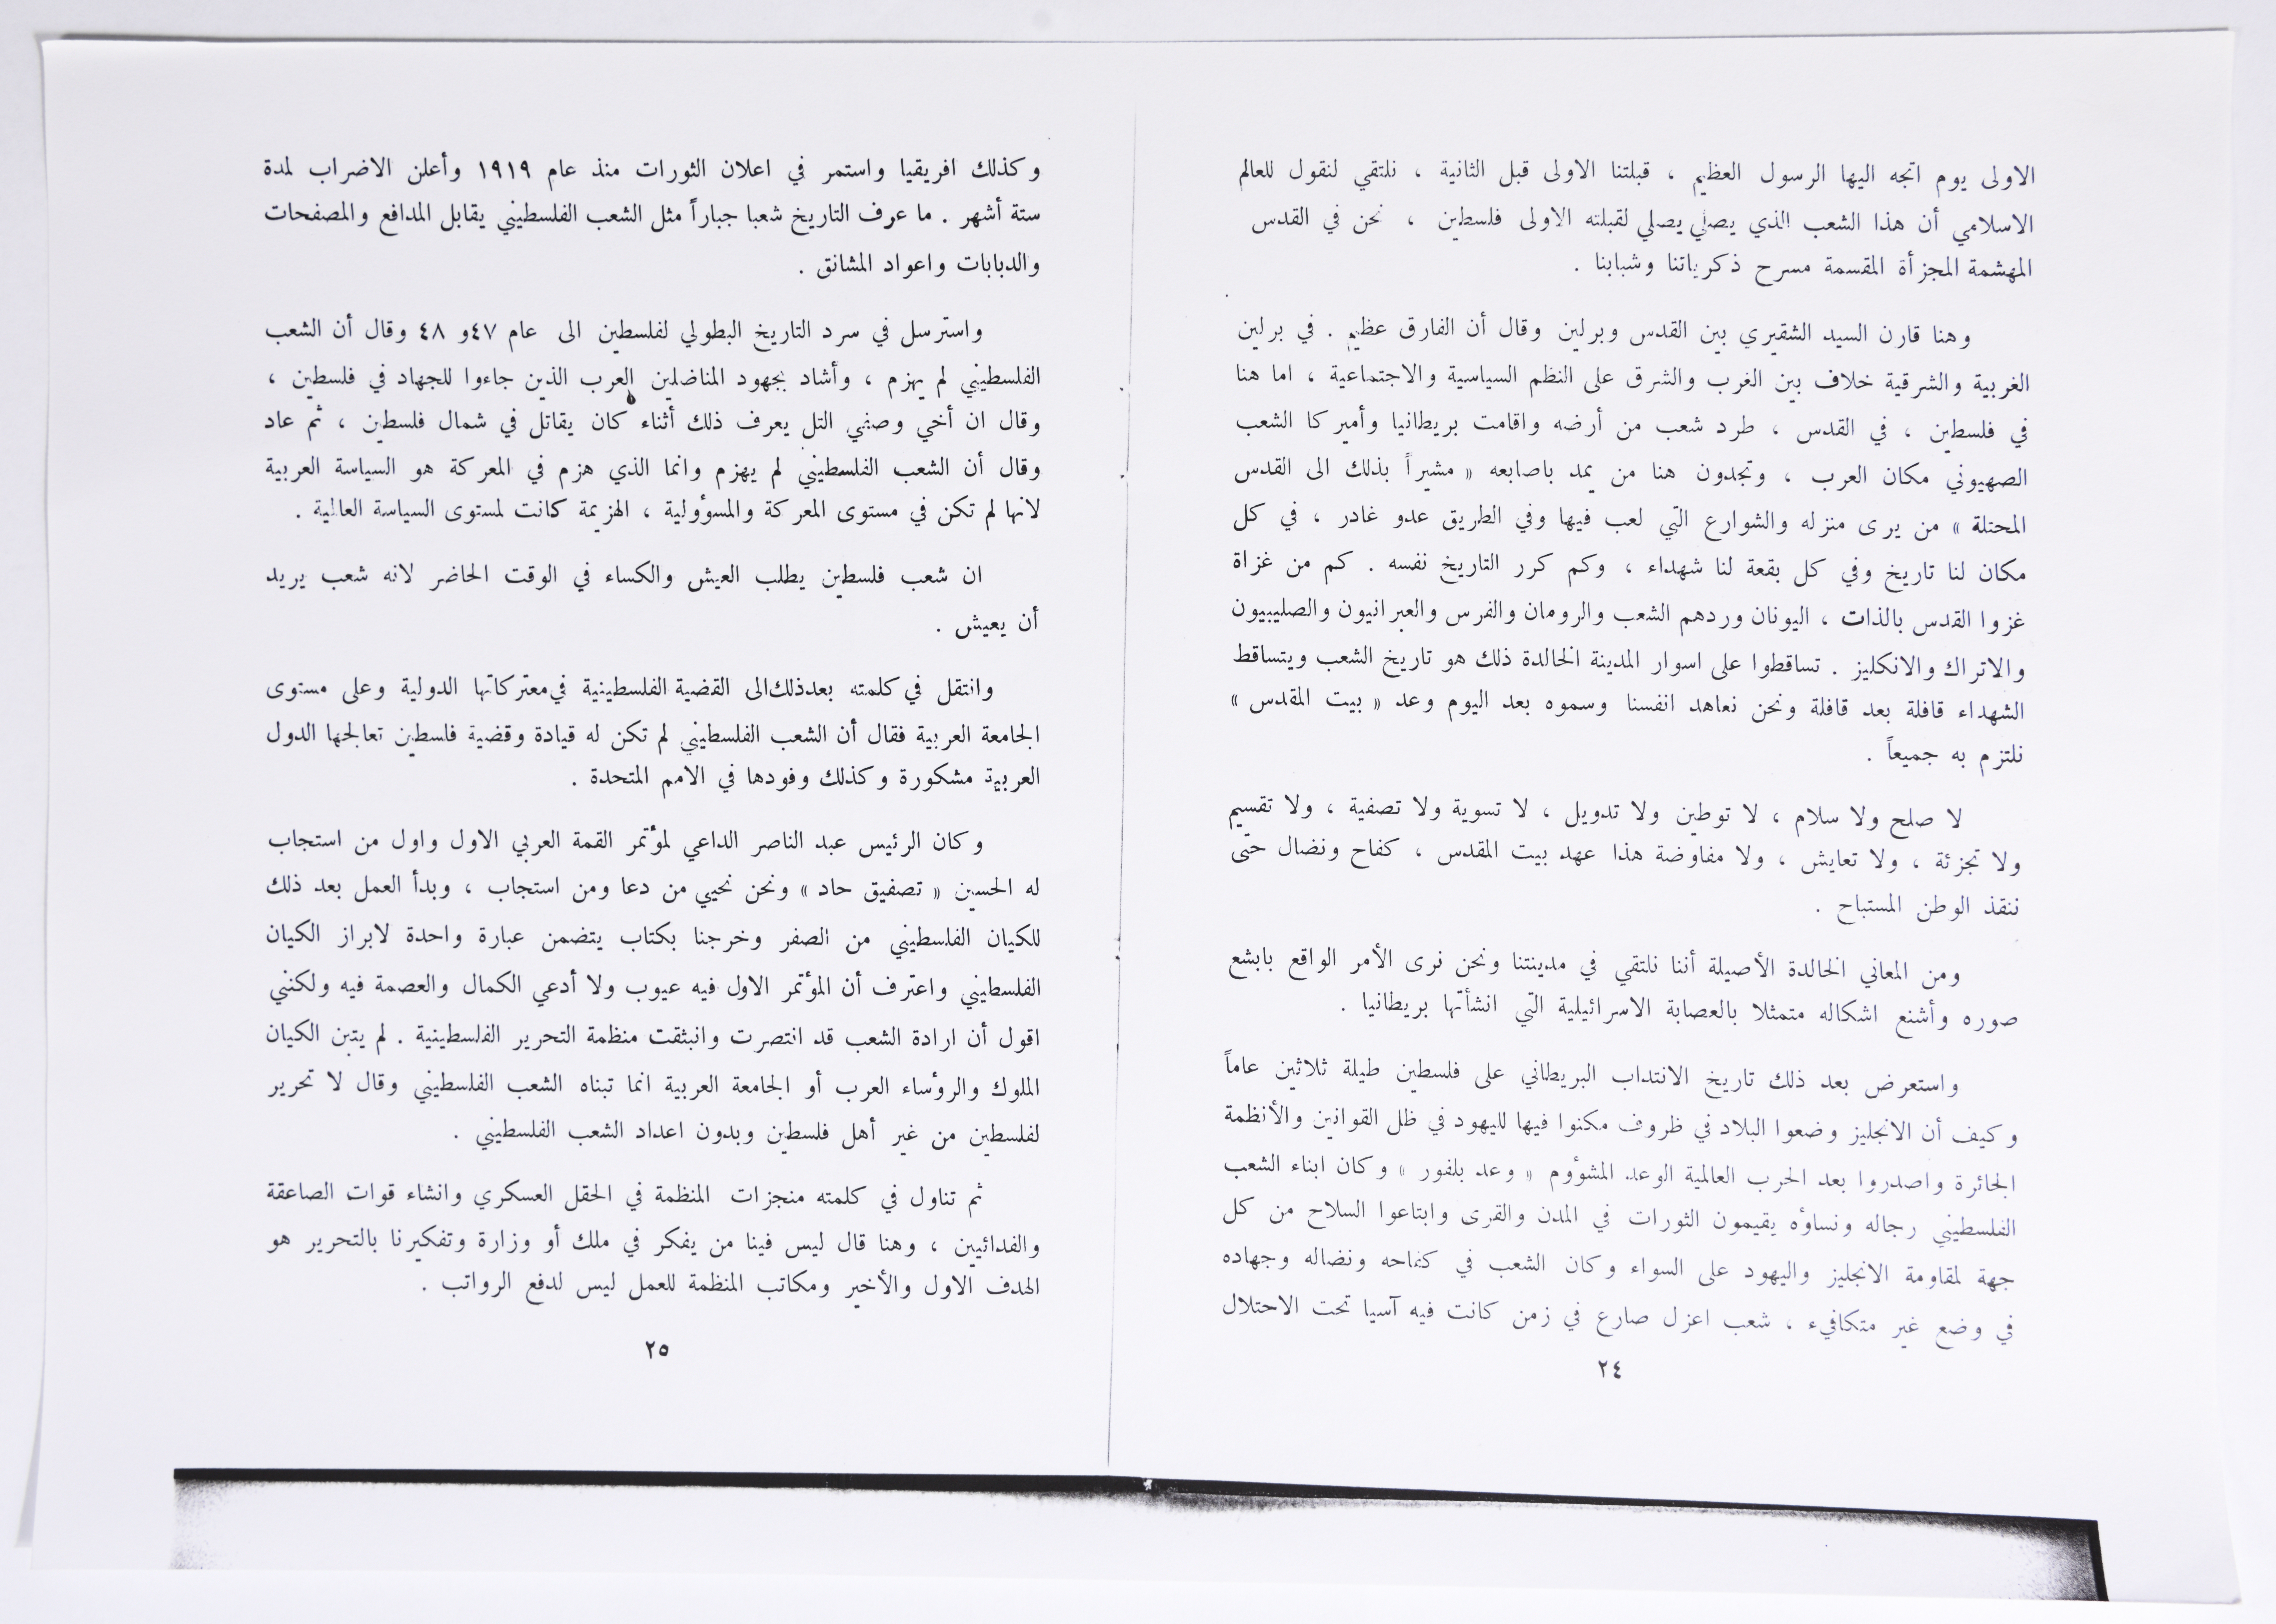 الاولى يوم اتجه اليها الرسول العظيم ، قبلتنا الاولى قبل الثانية ، نلتقي لنقول للعالم
الاسلامي أن هذا الشعب الذي يصلي يصلي لقبلته الاولى فلسطين ، نحن في القدس
المهشمة المجزأة المقسمة مسرح ذكرياتنا وشبابنا .
وهنا قارن السيد الشقيري بين القدس وبرلين وقال أن الفارق عظيم . في برلين
الغربية والشرقية خلاف بين الغرب والشرق على النظم السياسية والاجتماعية ، اما هنا
في فلسطين ، في القدس ، طرد شعب من أرضه واقامت بريطانيا وأميركا الشعب
الصهيوني مكان العرب ، وتجدون هنا من يمد باصابعه « مشيراً بذلك الى القدس
المحتلة » من يرى منزله والشوارع التي لعب فيها وفي الطريق عدو غادر ، في كل
مكان لنا تاريخ وفي كل بقعة لنا شهداء ، وكم كرر التاريخ نفسه . كم من غزاة
غزوا القدس بالذات ، اليونان وردهم الشعب والرومان والفرس والعبرانيون والصليبيون
والاتراك والانكليز . تساقطوا على اسوار المدينة الخالدة ذلك هو تاريخ الشعب ويتساقط
الشهداء قافلة بعد قافلة ونحن نعاهد انفسنا وسموه بعد اليوم وعد « بيت المقدس »
نلتزم به جميعاً .
لا صلح ولا سلام ، لا توطين ولا تدويل ، لا تسوية ولا تصفية ، ولا تقسيم
ولا تجزئة ، ولا تعايش ، ولا مفاوضة هذا عهد بيت المقدس ، كفاح ونضال حتى
ننقذ الوطن المستباح .
ومن المعاني الخالدة الأصيلة أننا نلتقي في مدينتنا ونحن نرى الأمر الواقع بابشع
صوره وأشنع اشكاله متمثلا بالعصابة الاسرائيلية التي انشأتها بريطانيا .
واستعرض بعد ذلك تاريخ الانتداب البريطاني على فلسطين طيلة ثلاثين عاماً
وكيف أن الانجليز وضعوا البلاد في ظروف مكنوا فيها لليهود في ظل القوانين والأنظمة
الجائرة واصدروا بعد الحرب العالمية الوعد المشؤوم « وعد بلفور » وكان ابناء الشعب
الفلسطيني رجاله ونساؤه يقيمون الثورات في المدن والقرى وابتاعوا السلاح من كل
جهة لمقاومة الانجليز واليهود على السواء وكان الشعب في كفاحه ونضاله وجهاده
في وضع غير متكافيء ، شعب اعزل صارع في زمن كانت فيه آسيا تحت الاحتلال
٢٤
وكذلك افريقيا واستمر في اعلان الثورات منذ عام ١٩١٩ وأعلن الاضراب لمدة
ستة أشهر . ما عرف التاريخ شعبا جباراً مثل الشعب الفلسطيني يقابل المدافع والمصفحات
والدبابات واعواد المشانق .
واسترسل في سرد التاريخ البطولي لفلسطين الى عام ٤٧و ٤٨ وقال أن الشعب
الفلسطيني لم يهزم ، وأشاد بجهود المناضلين العرب الذين جاءوا للجهاد في فلسطين ،
وقال ان أخي وصفي التل يعرف ذلك أثناء كان يقاتل في شمال فلسطين ، ثم عاد
وقال أن الشعب الفلسطيني لم يهزم وانما الذي هزم في المعركة هو السياسة العربية
لانها لم تكن في مستوى المعركة والمسؤولية ، الهزيمة كانت لمستوى السياسة العالية .
ان شعب فلسطين يطلب العيش والكساء في الوقت الحاضر لانه شعب يريد
أن يعيش .
وانتقل في كلمته بعدذلك الى القضية الفلسطينية في معتركاتها الدولية وعلى مستوى
الجامعة العربية فقال أن الشعب الفلسطيني لم تكن له قيادة وقضية فلسطين تعالجها الدول
العربية مشكورة وكذلك وفودها في الامم المتحدة .
وكان الرئيس عبد الناصر الداعي لمؤتمر القمة العربي الاول واول من استجاب
له الحسين « تصفيق حاد » ونحن نحيي من دعا ومن استجاب ، وبدأ العمل بعد ذلك
للكيان الفلسطيني من الصفر وخرجنا بكتاب يتضمن عبارة واحدة لابراز الكيان
الفلسطيني واعترف أن المؤتمر الاول فيه عيوب ولا أدعي الكمال والعصمة فيه ولكنني
اقول أن ارادة الشعب قد انتصرت وانبثقت منظمة التحرير الفلسطينية . لم يتبن الكيان
الملوك والرؤساء العرب أو الجامعة العربية انما تبناه الشعب الفلسطيني وقال لا تحرير
لفلسطين من غير أهل فلسطين وبدون اعداد الشعب الفلسطيني .
ثم تناول في كلمته منجزات المنظمة في الحقل العسكري وانشاء قوات الصاعقة
والفدائيين ، وهنا قال ليس فينا من يفكر في ملك أو وزارة وتفكيرنا بالتحرير هو
الهدف الاول والأخير ومكاتب المنظمة للعمل ليس لدفع الرواتب .
٢٥